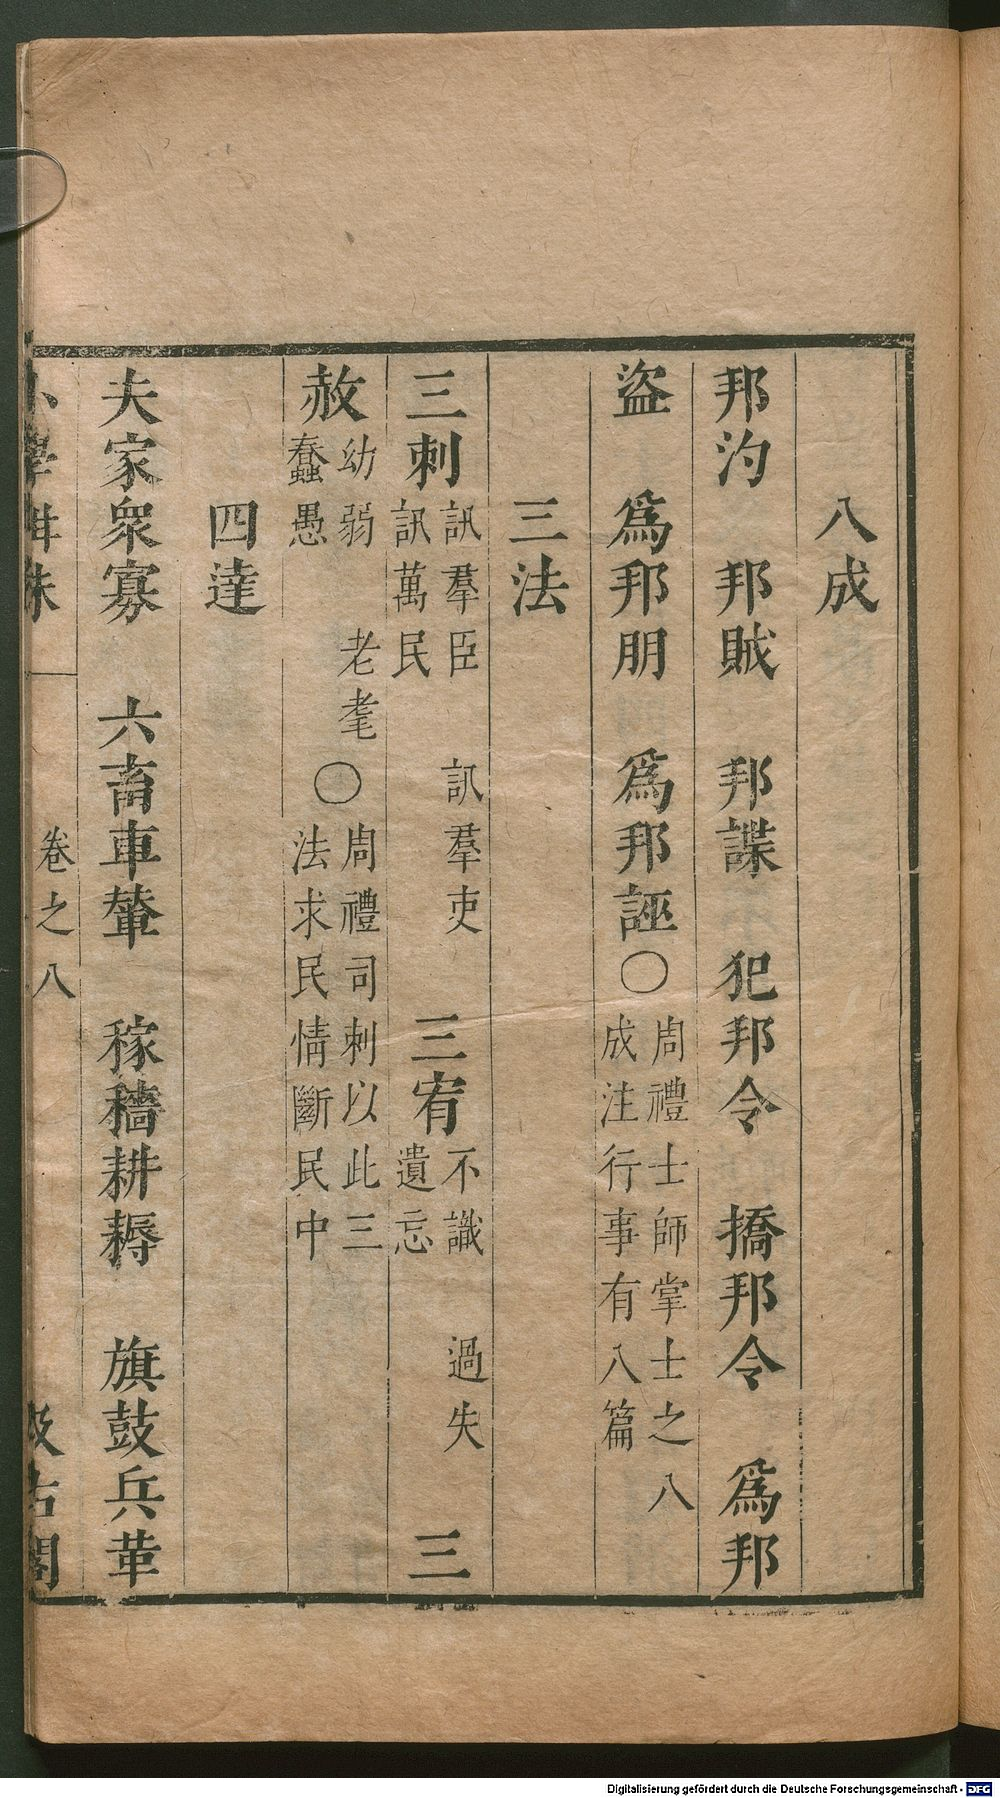 八成
邦汋　邦賊　邦諜　犯邦令　撟邦令　爲邦
盜　爲邦朋　爲邦誣〇周禮士師掌士之八
成注行事有八篇
三法
三刺訊羣臣　訊羣吏
訊萬民　三宥不識　過失
遺忘　三
赦幼弱　老耄
蠢愚〇周禮司刺以此三
法求民情斷民中
四達
夫家衆寡　六畜車輦　稼穡耕耨　旗鼓兵革
小學紺珠　卷之八　汲古閣
Digitalisierung gefördert durch die Deutsche Forschungsgemeinschaft - DFG